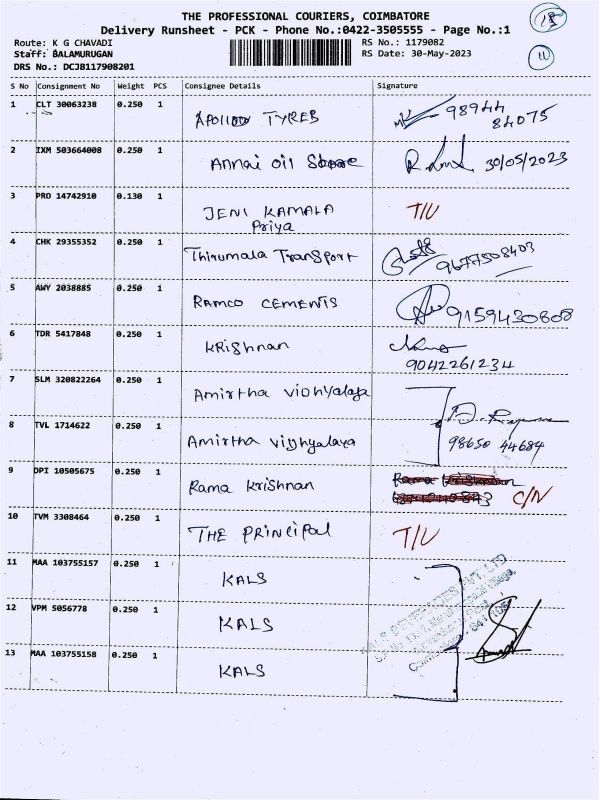 THE PROFESSIONAL COURIERS, COIMBATORE
Delivery Runsheet - PCK - Phone No.:0422-3505555 - Page No.:1
Route: K G CHAVADI RS No.: 1179082
Staff: BALAMURUGAN RS Date: 30-May-2023
DRS No.: DCJB117908201
S No Consignment No Weight PCS Consignee Details Signature
1 CLT 30063238 0.250 1 TYRES 98944
84075
2 IXM 503664008 0.250 1 Annai oil Store 30/05/2023
3 PRO 14742910 0.130 1 JENI KAMALA T/U
Priya
4 CHK 29355352 0.250 1 Thirumala Transport 9677508403
5 AWY 2038885 0.250 1 RAMCO CEMENTS 9159430808
6 TDR 5417848 0.250 1 KRishnan
9042261234
7 SLM 320822264 0.250 1 Amirtha vidhyalaya
8 TVL 1714622 0.250 1 Amirtha vidhyalaya 98650 44684
9 DPI 10505675 0.250 1 Rama Krishnan C/N
10 TVM 3308464 0.250 1 THE PRINCIPAL T/U
11 MAA 103755157 0.250 1 KALS
12 VPM 5056778 0.250 1 KALS
13 MAA 103755158 0.250 1 KALS